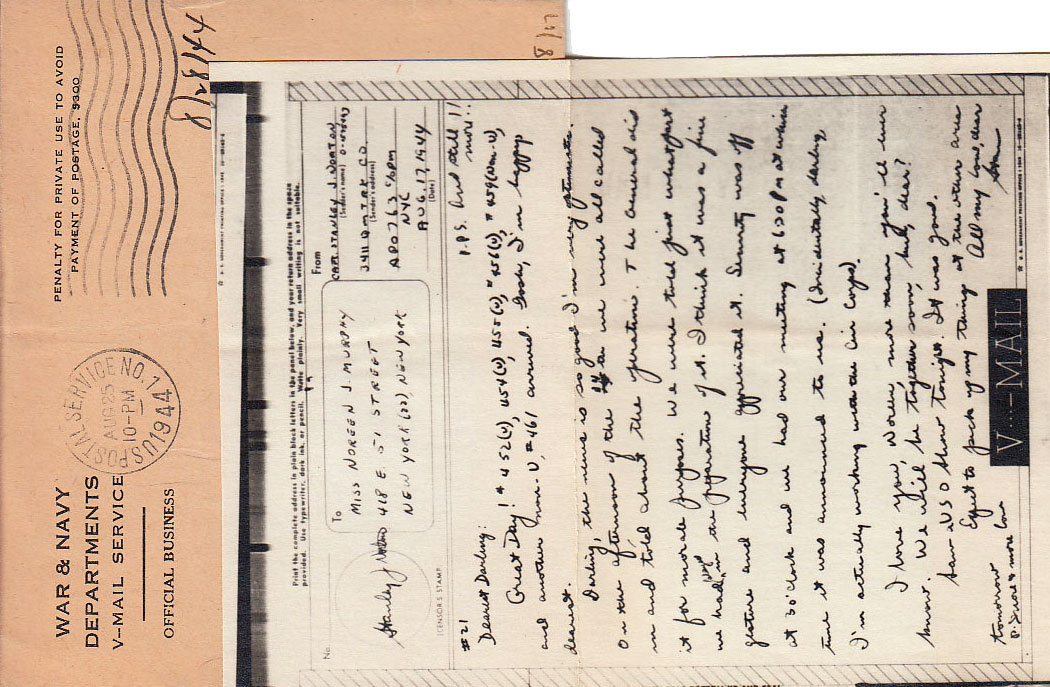 WAR & NAVY
DEPARTMENTS
V–MAIL SERVICE
OFFICIAL BUSINESS
US POSTAL SERVICE NO. 1
AUG 25
10-PM
1944
PENALTY FOR PRIVATE USE TO AVOID
PAYMENT OF POSTAGE, $300
8/28/44
8/17
Print the complete address in plain block letters in the panel below, and your return address in the space
provided. Use typewriter, dark ink, or pencil. Write plainly. Very small writing is not suitable.
No.
CENSOR'S STAMP
To
MISS NOREEN J. MURPHY
418 E. 51 STREET
NEW YORK (22) NEW YORK
From
CAPT. STANLEY J. NORTON
(Sender's name)
3411 QM TRK CO.
(Sender's address)
APO 763 c/o PM
NYC
AUG. 17, 1944
(Date)
#21
P.P.S. And still 11
more!!
Dearest Darling:
Great Day! # 452(V), 454(V), 455(V), #456(V), #459(Non-V),
and another none-V, #461 arrived. Gosh, I'm happy
dearest.
Darling, the news is so good I'm very optimistic.
On the afternoon of the we were all called
in and told about the operation. The General did
it for morale purposes. We were told just what part
we had in the preparation of it. I think it was a fine
gesture and everyone appreciated it. Security was off
at 3 o'clock and we had our meeting at 6:30 PM at which
time it was announced to us. (Incidentally, darling,
I'm actually working with the Air Corps).
I love you, Noreen, more than you'll ever
know. We will be together soon, huh, dear?
Saw USO show tonight. It was good.
Expect to pick up my things at the other area
tomorrow
All my love, dear
P.S. more & more love
V···–MAIL